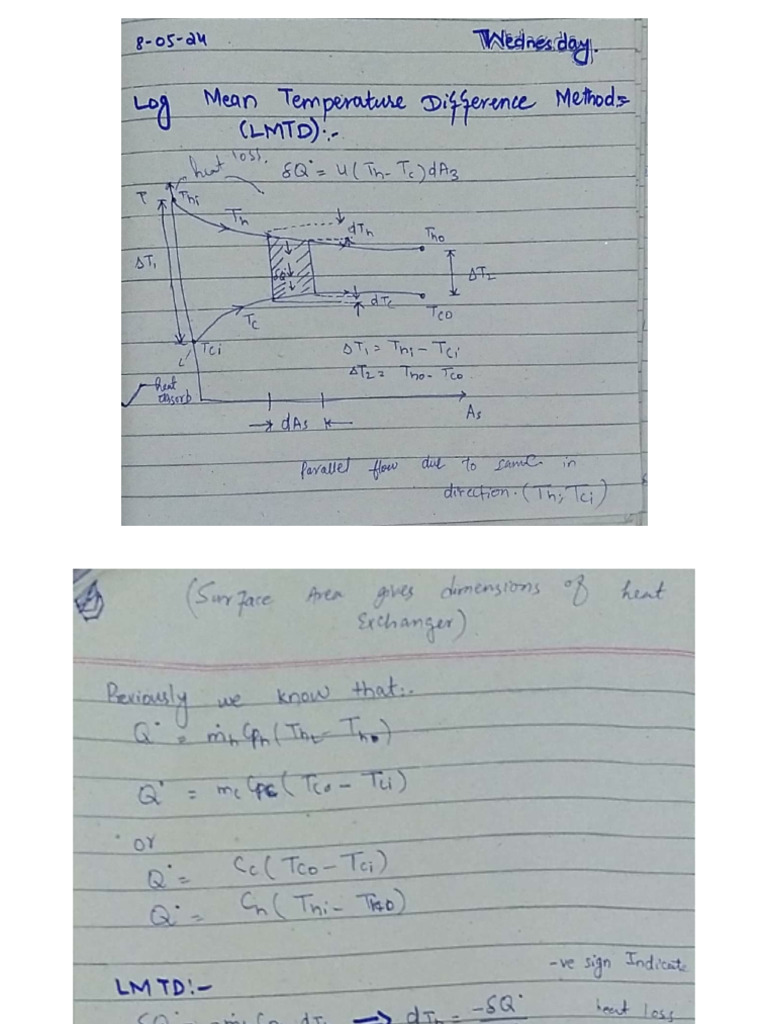 8-05-24
Wednesday.
Log Mean Temperature Difference Methods
(LMTD):-
heat loss.
δQ˙ = U(Th - Tc)dAs
T
Thi
Th
dTh
Tho
ΔT1
δQ
ΔT2
dTc
Tc
Tco
Tci
ΔT1 = Thi - Tci
ΔT2 = Tho - Tco
heat
absorb
As
dAs
Parallel flow due to same in
direction. (Thi, Tci)
(Surface Area gives dimensions of heat
Exchanger)
Previously we know that:-
Q˙ = ṁh Cph (Thi - Tho)
Q˙ = mc Cpc (Tco - Tci)
or
Q˙ = Cc (Tco - Tci)
Q˙ = Ch (Thi - Tho)
-ve sign Indicate
LMTD:-
heat loss
dTh = -δQ˙